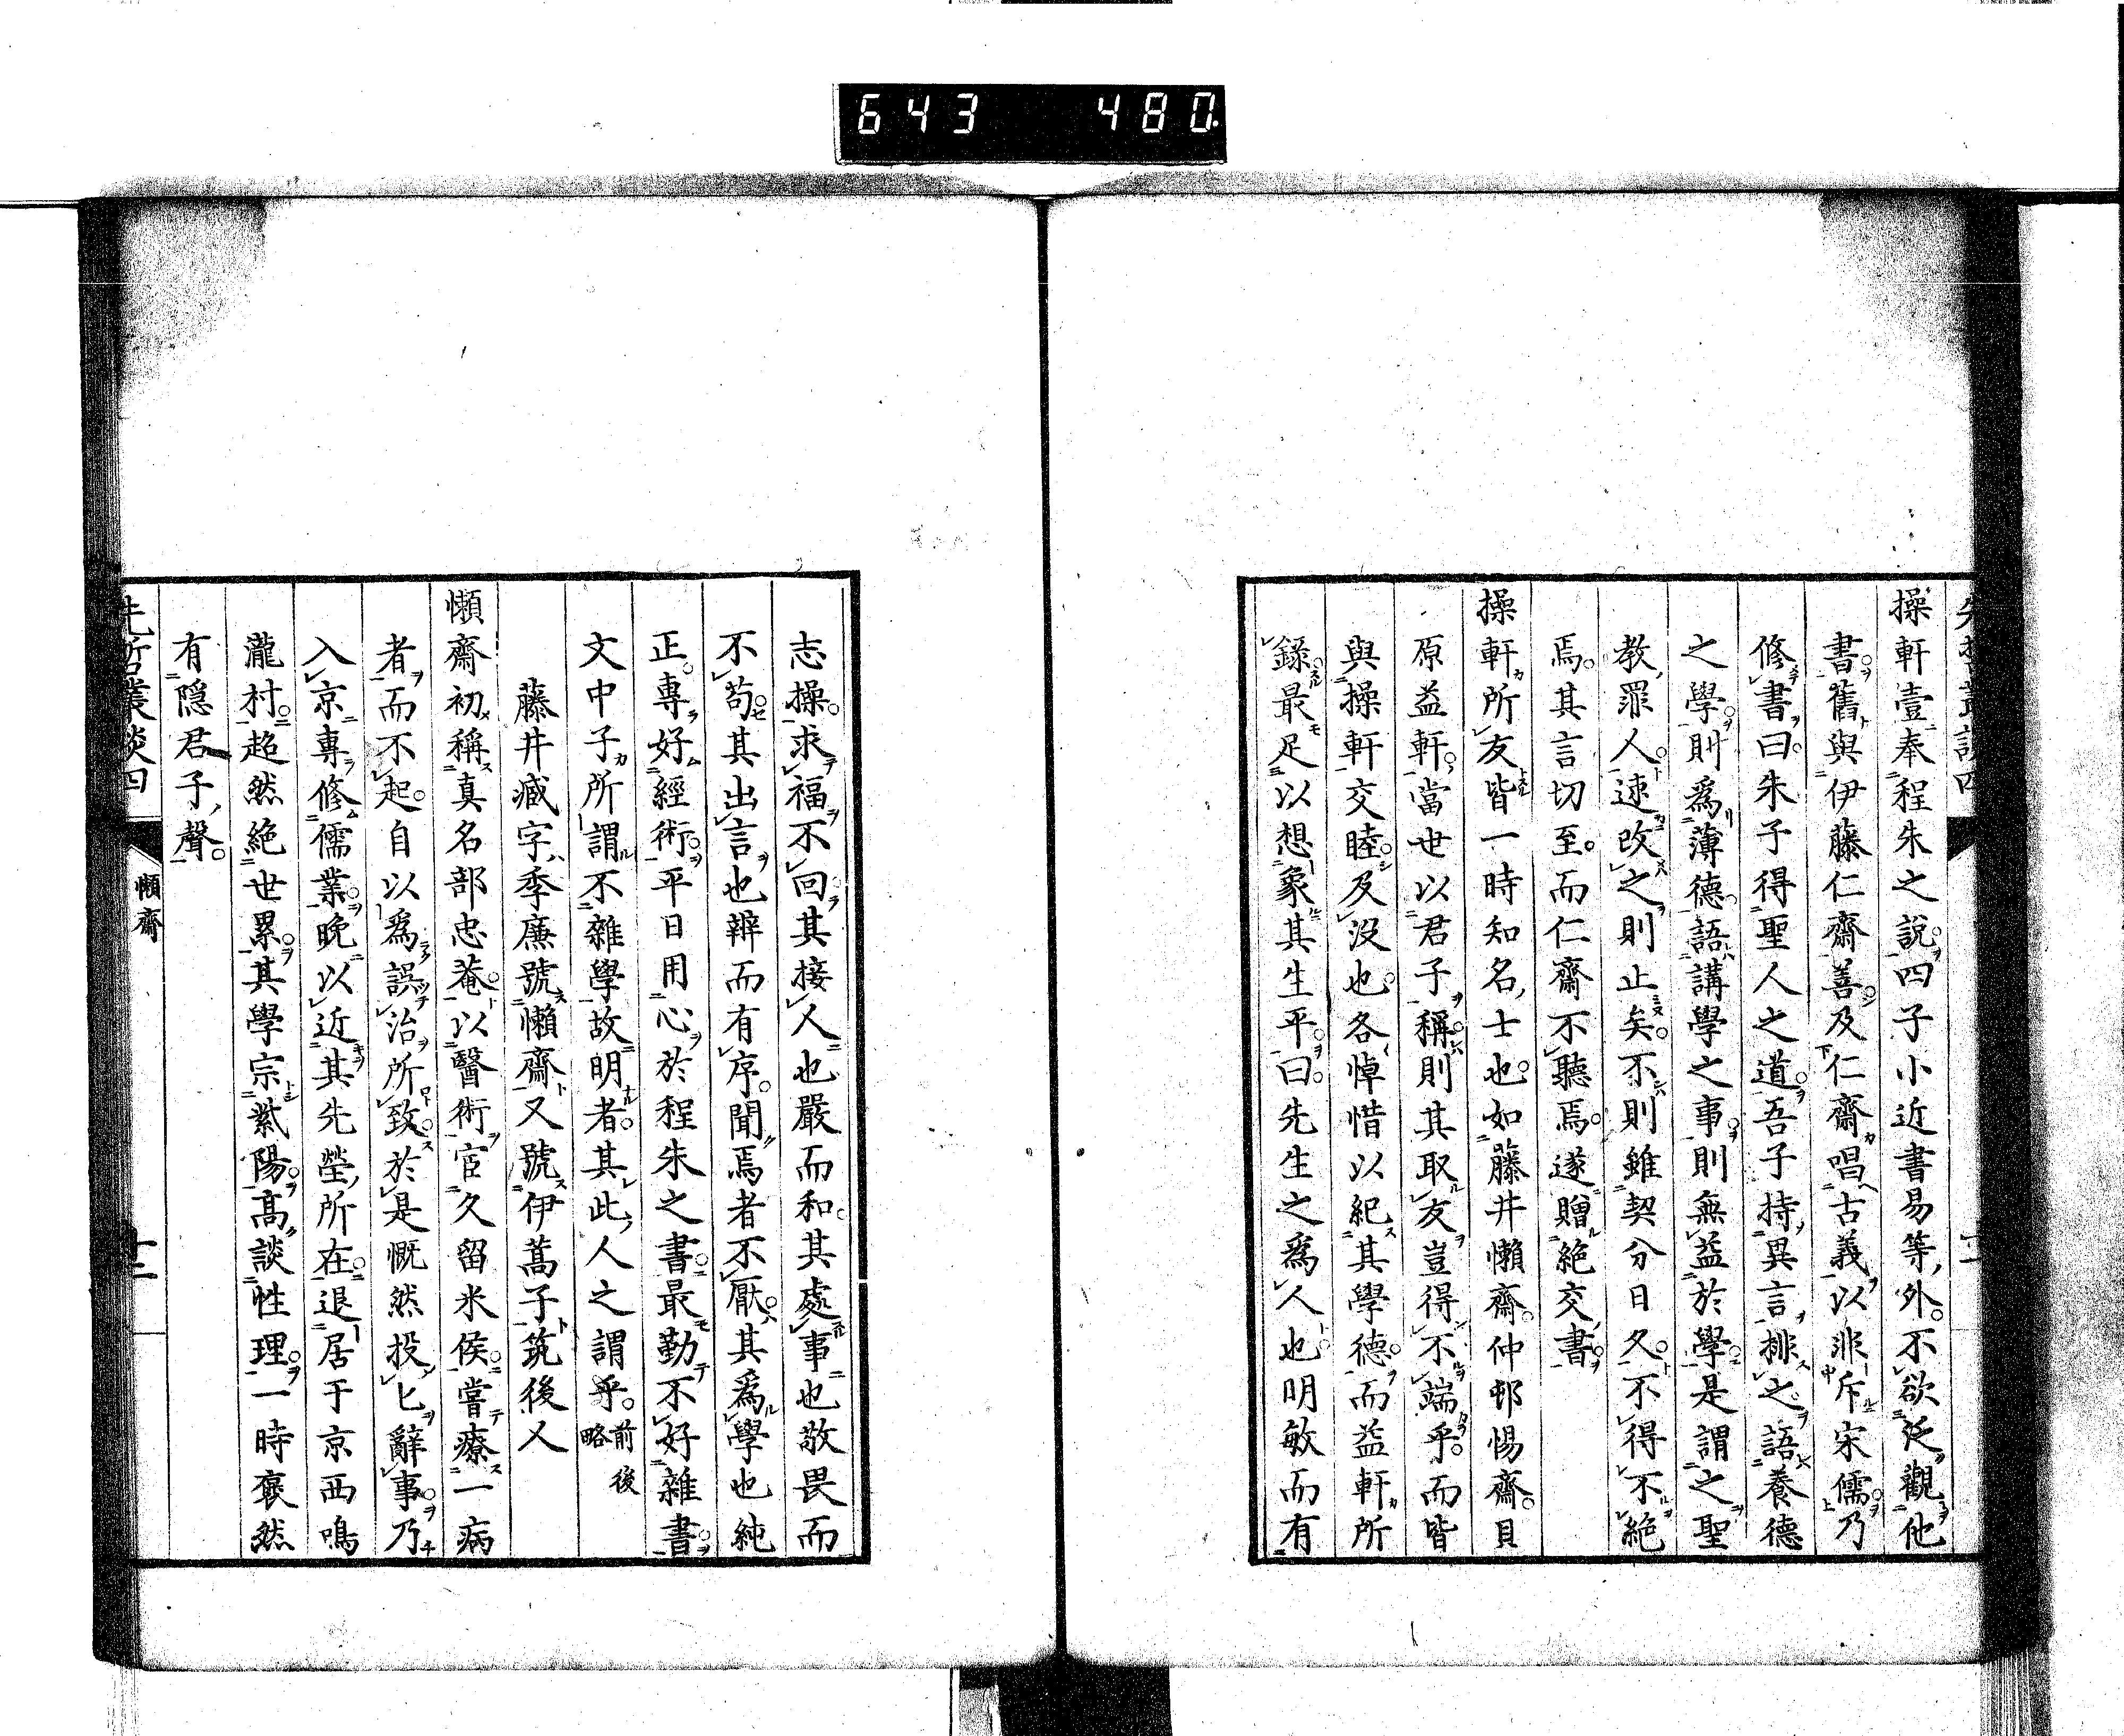 643 480.
操軒壹奉程朱之說四子小近書易等外不欲泛觀他
書舊與伊藤仁齋善及仁齋唱古義以非斥宋儒乃
修書曰朱子得聖人之道吾子持異言排之語養德
之學則爲薄德語講學之事則無益於學是謂之聖
教罪人速改之則止矣不則雖契分日久不得不絕
焉其言切至而仁齋不聽焉遂贈絕交書
操軒所友皆一時知名士也如藤井懶齋仲邨惕齋貝
原益軒當世以君子稱則其取友豈得不端乎而皆
與操軒交睦及沒也各悼惜以紀其學德而益軒所
錄最足以想象其生平曰先生之爲人也明敏而有
志操求福不回其接人也嚴而和其處事也敬畏而
不苟其出言也辨而有序聞焉者不厭其爲學也純
正專好經術平日用心於程朱之書最勤不好雜書
文中子所謂不雜學故明者其此人之謂乎前後略
藤井臧字季廉號懶齋又號伊蒿子筑後人
懶齋初稱真名部忠菴以醫術宦久留米侯嘗療一病
者而不起自以爲誤治所致於是慨然投匕辭事乃
入京專修儒業晚以近其先塋所在退居于京西鳴
瀧村超然絕世累其學宗紫陽高談性理一時裒然
有隱君子聲
先哲叢談四
懶齋
十二